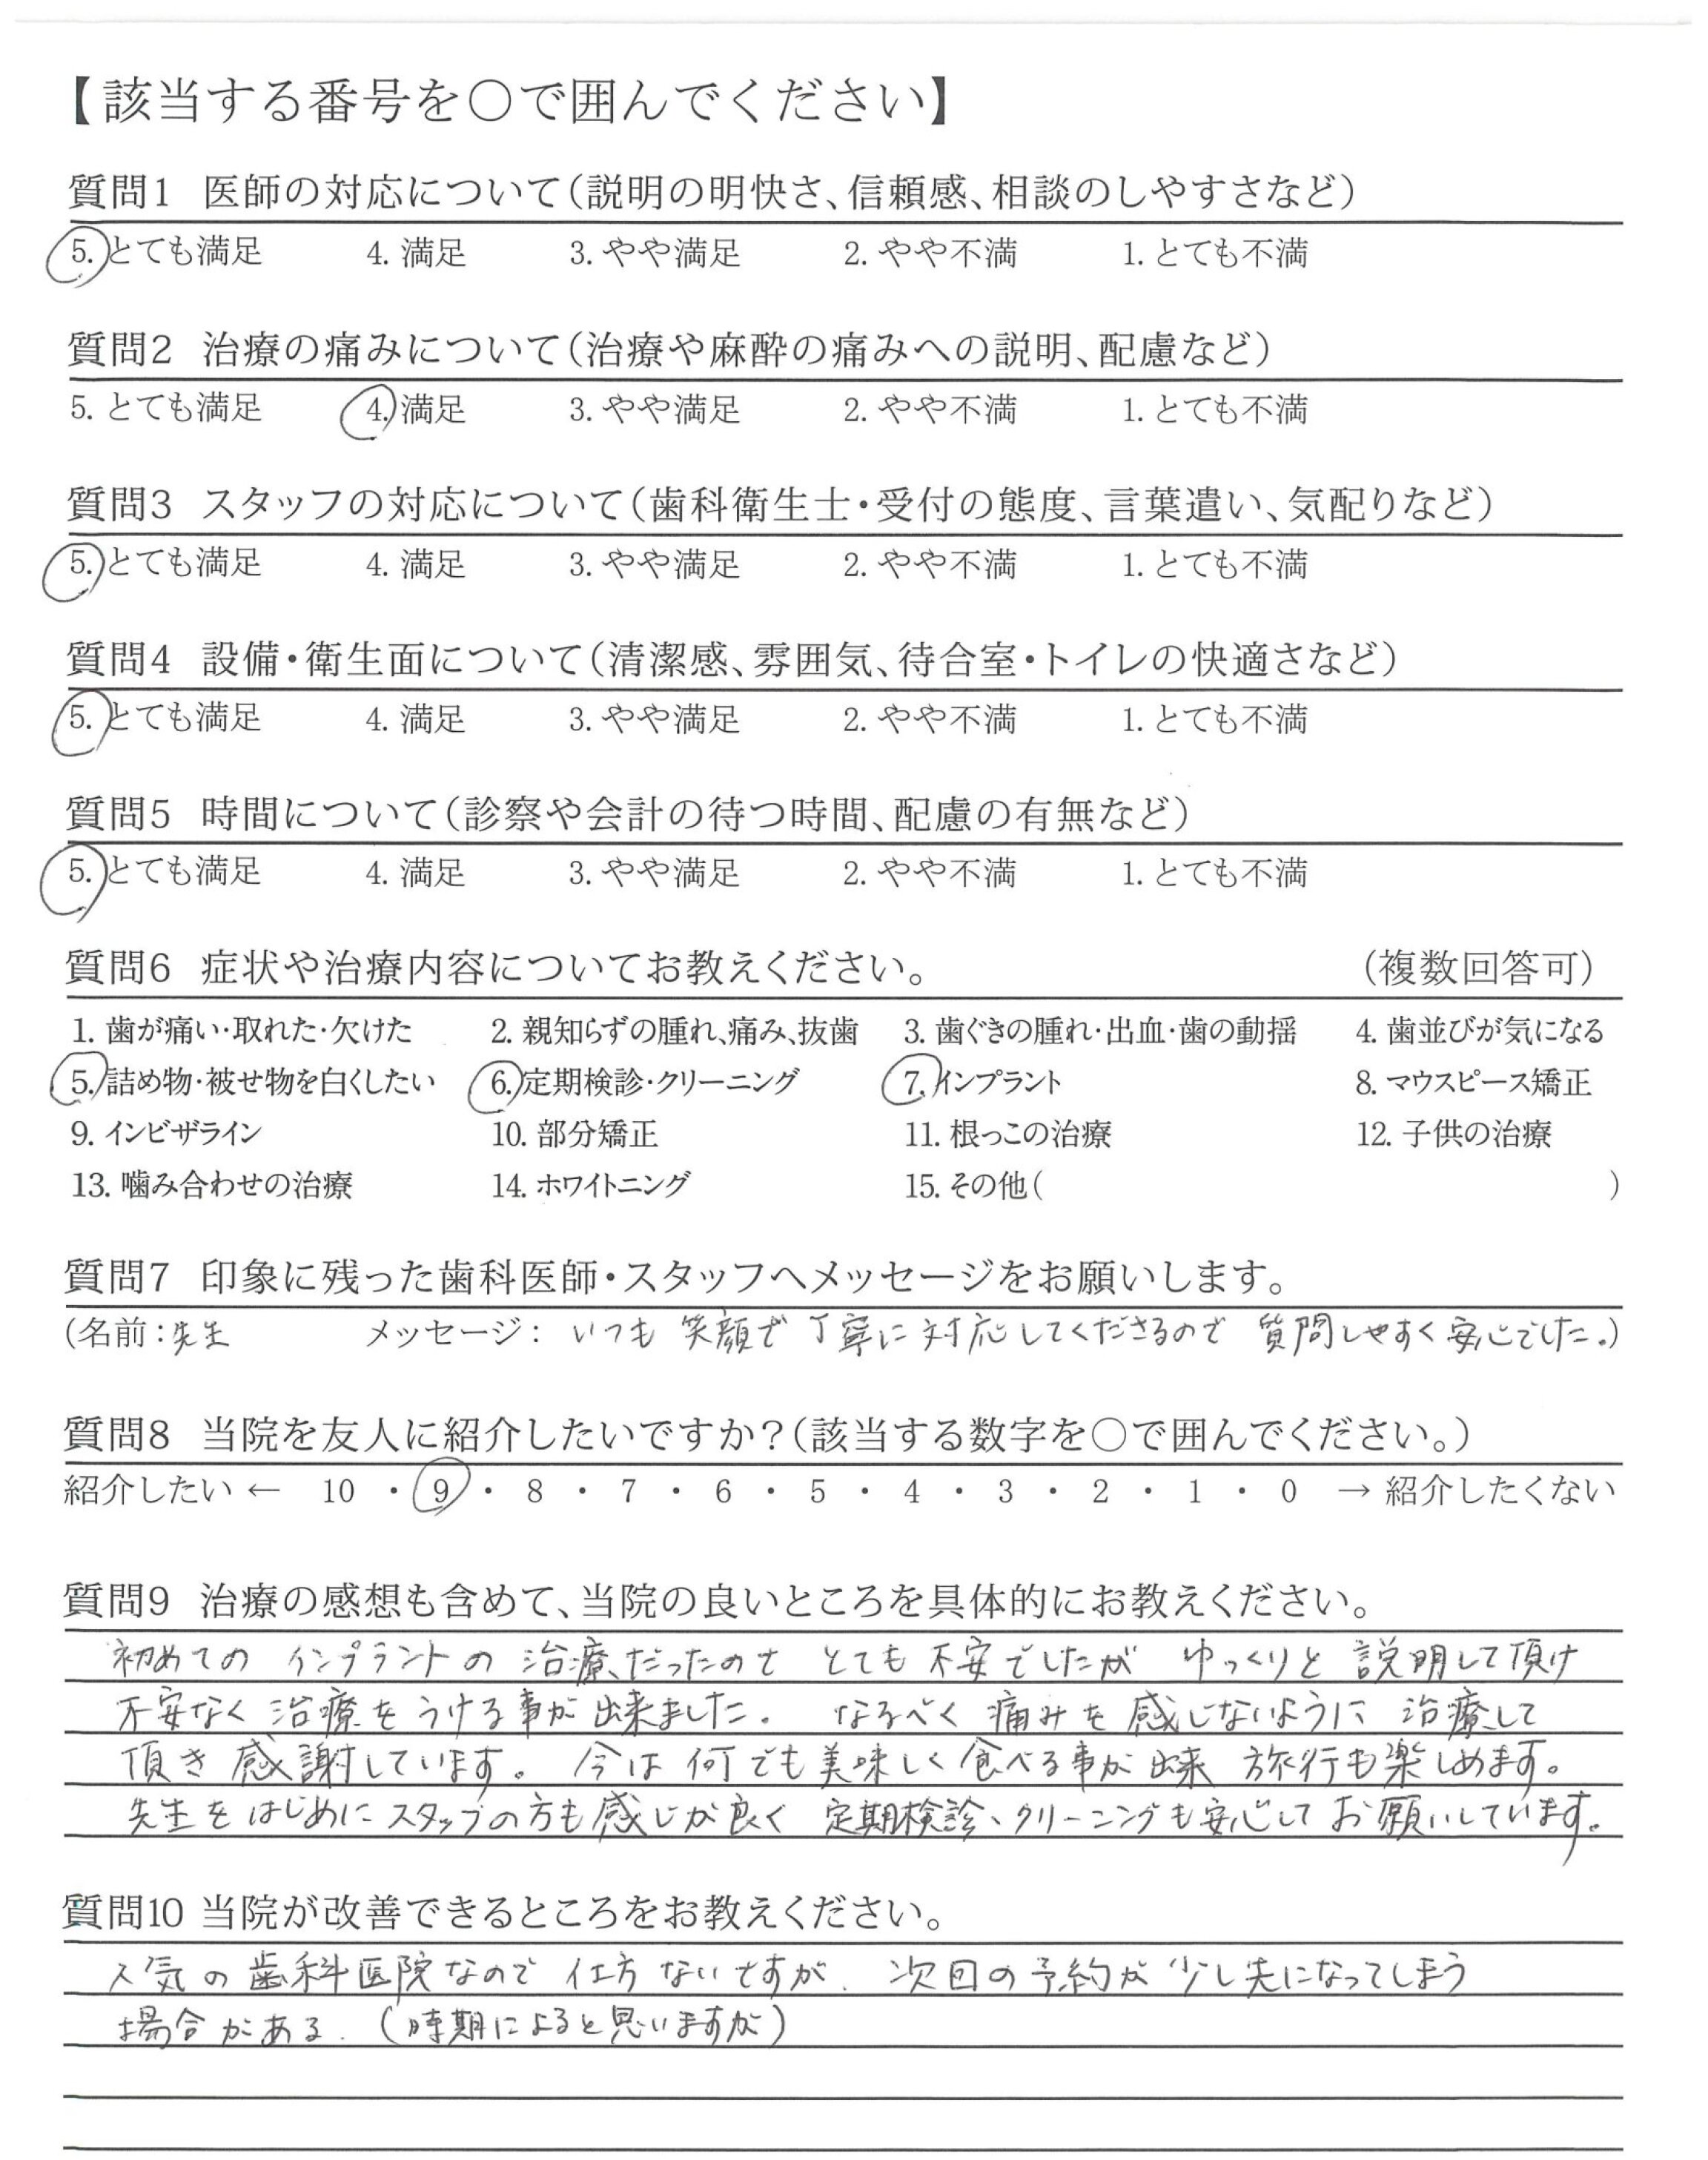 【該当する番号を〇で囲んでください】
質問1 医師の対応について(説明の明快さ、信頼感、相談のしやすさなど)
5. とても満足 4. 満足 3. やや満足 2. やや不満 1. とても不満
質問2 治療の痛みについて(治療や麻酔の痛みへの説明、配慮など)
5. とても満足 4. 満足 3. やや満足 2. やや不満 1. とても不満
質問3 スタッフの対応について(歯科衛生士・受付の態度、言葉遣い、気配りなど)
5. とても満足 4. 満足 3. やや満足 2. やや不満 1. とても不満
質問4 設備・衛生面について(清潔感、雰囲気、待合室・トイレの快適さなど)
5. とても満足 4. 満足 3. やや満足 2. やや不満 1. とても不満
質問5 時間について(診察や会計の待つ時間、配慮の有無など)
5. とても満足 4. 満足 3. やや満足 2. やや不満 1. とても不満
質問6 症状や治療内容についてお教えください。 (複数回答可)
1. 歯が痛い・取れた・欠けた 2. 親知らずの腫れ、痛み、抜歯 3. 歯ぐきの腫れ・出血・歯の動揺 4. 歯並びが気になる
5. 詰め物・被せ物を白くしたい 6. 定期検診・クリーニング 7. インプラント 8. マウスピース矯正
9. インビザライン 10. 部分矯正 11. 根っこの治療 12. 子供の治療
13. 噛み合わせの治療 14. ホワイトニング 15. その他( )
質問7 印象に残った歯科医師・スタッフへメッセージをお願いします。
(名前:先生 メッセージ: いつも 笑顔で 丁寧に 対応してくださるので 質問しやすく 安心でした。)
質問8 当院を友人に紹介したいですか?(該当する数字を〇で囲んでください。)
紹介したい ← 10 ・ 9 ・ 8 ・ 7 ・ 6 ・ 5 ・ 4 ・ 3 ・ 2 ・ 1 ・ 0 → 紹介したくない
質問9 治療の感想も含めて、当院の良いところを具体的にお教えください。
初めての インプラントの 治療だったのせ とても 不安でしたが ゆっくりと 説明して頂け
不安なく 治療を うける事が 出来ました。 なるべく 痛みを 感じないように 治療して
頂き 感謝しています。 今は 何でも 美味しく 食べる事が 出来 旅行も楽しめます。
先生を はじめに スタッフの方も 感じが良く 定期検診、クリーニングも 安心して お願いしています。
質問10 当院が改善できるところをお教えください。
人気の 歯科医院なので 仕方ないですが、次回の予約が 少し先になってしまう
場合がある。(時期によると思いますが)